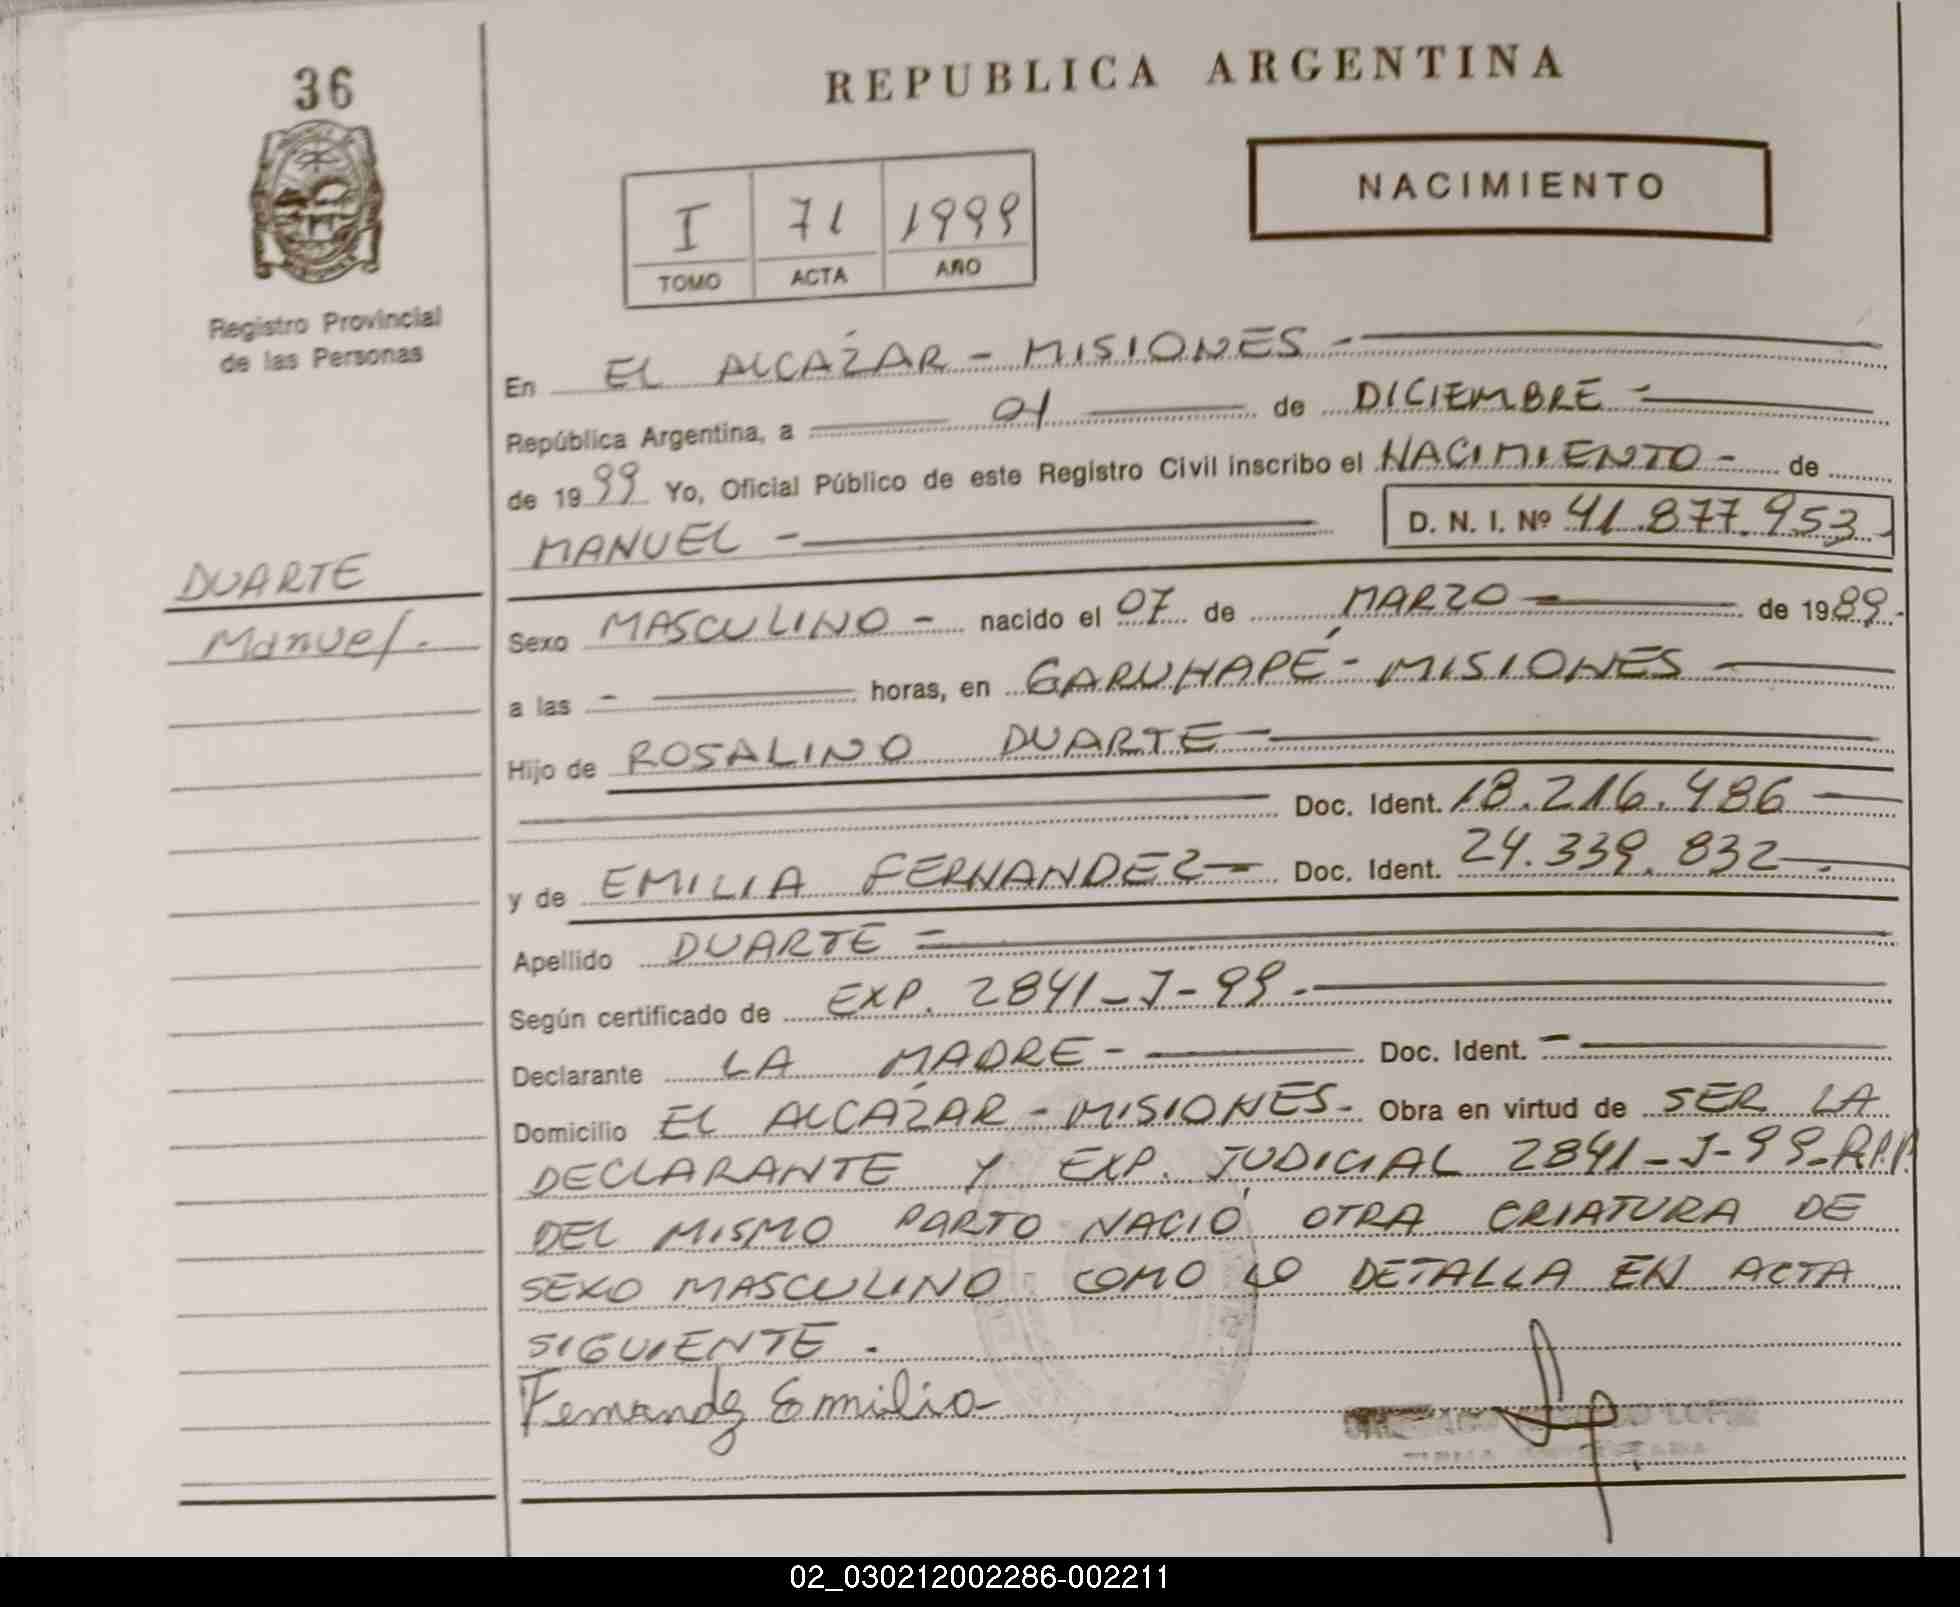 36
REPUBLICA ARGENTINA
NACIMIENTO
I 71 1999
TOMO ACTA AÑO
Registro Provincial
de las Personas
En EL ALCAZAR - MISIONES -
República Argentina, a 01 de DICIEMBRE -
de 1999 Yo, Oficial Público de este Registro Civil inscribo el NACIMIENTO - de
MANUEL - D. N. I. Nº 41.877.953-
DUARTE
Manuel.-
Sexo MASCULINO - nacido el 07 de MARZO - de 1989.
a las - horas, en GARUHAPÉ - MISIONES
Hijo de ROSALINO DUARTE -
Doc. Ident. 18.216.486
y de EMILIA FERNANDEZ - Doc. Ident. 24.339.832 -.
Apellido DUARTE -
Según certificado de EXP. 2841-J-99.-
Declarante LA MADRE - Doc. Ident. -
Domicilio EL ALCAZAR - MISIONES - Obra en virtud de SER LA
DECLARANTE Y EXP. JUDICIAL 2841-J-99-R.P.P.
DEL MISMO PARTO NACIÓ OTRA CRIATURA DE
SEXO MASCULINO COMO LO DETALLA EN ACTA
SIGUIENTE.
Fernandz Emilia
LOPEZ
02_030212002286-002211